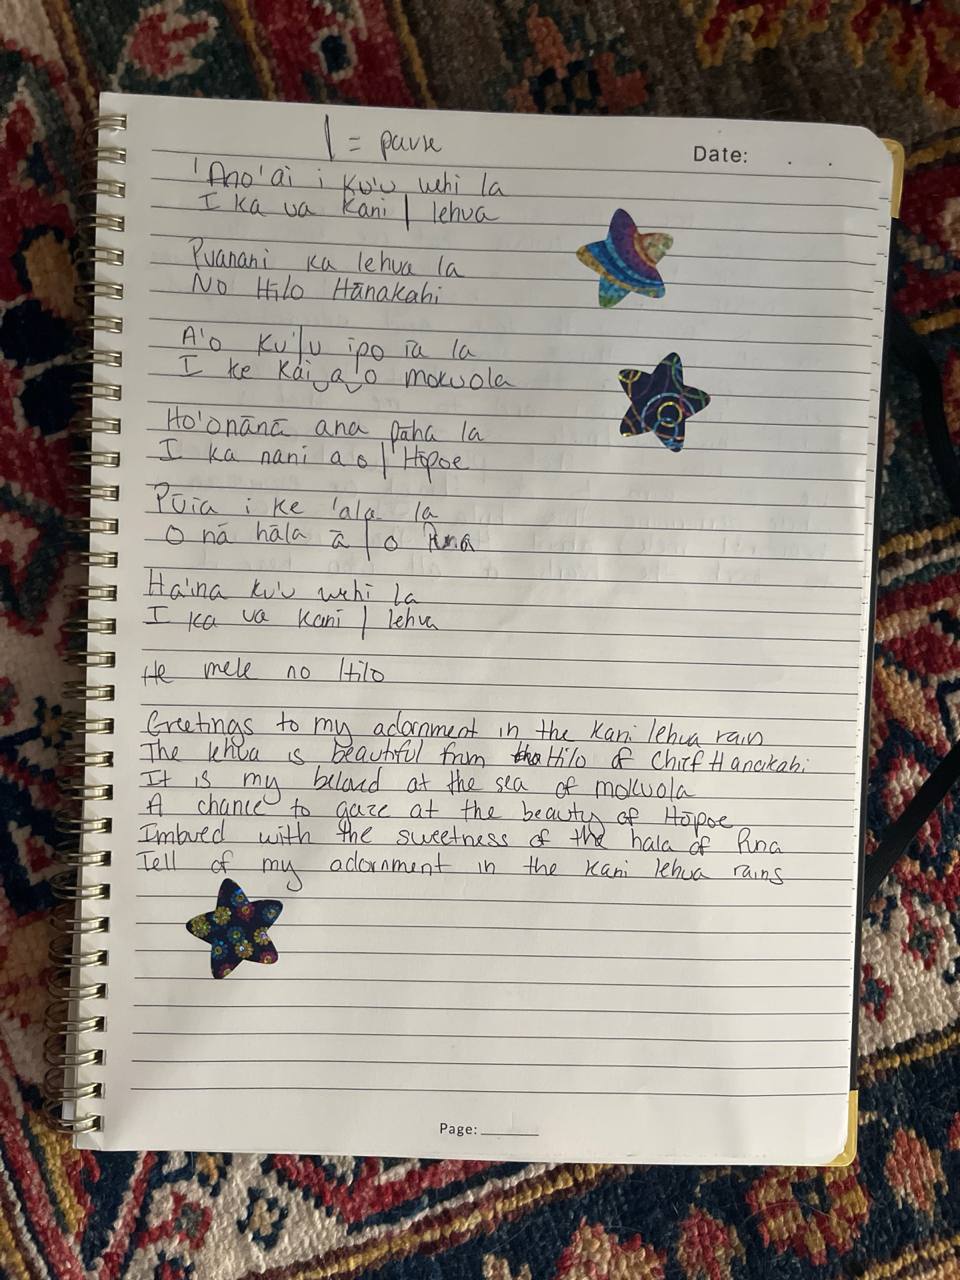 | = pause
Date: . .
'Ano'ai i ku'u wehi la
I ka ua kani | lehua
Puanani ka lehua la
No Hilo Hānakahi
A'o ku'|u ipo ia la
I ke kai‿a‿o mokuola
Ho'onānā ana paha la
I ka nani a o | Hōpoe
Pūia i ke 'ala la
O nā hāla ā | o Puna
Ha'ina ku'u wehi la
I ka ua kani | lehua
He mele no Hilo
Greetings to my adornment in the kani lehua rain
The lehua is beautiful from the Hilo of Chief Hanakahi
It is my beloved at the sea of mokuola
A chance to gaze at the beauty of Hōpoe
Imbued with the sweetness of the hala of Puna
Tell of my adornment in the kani lehua rains
Page: